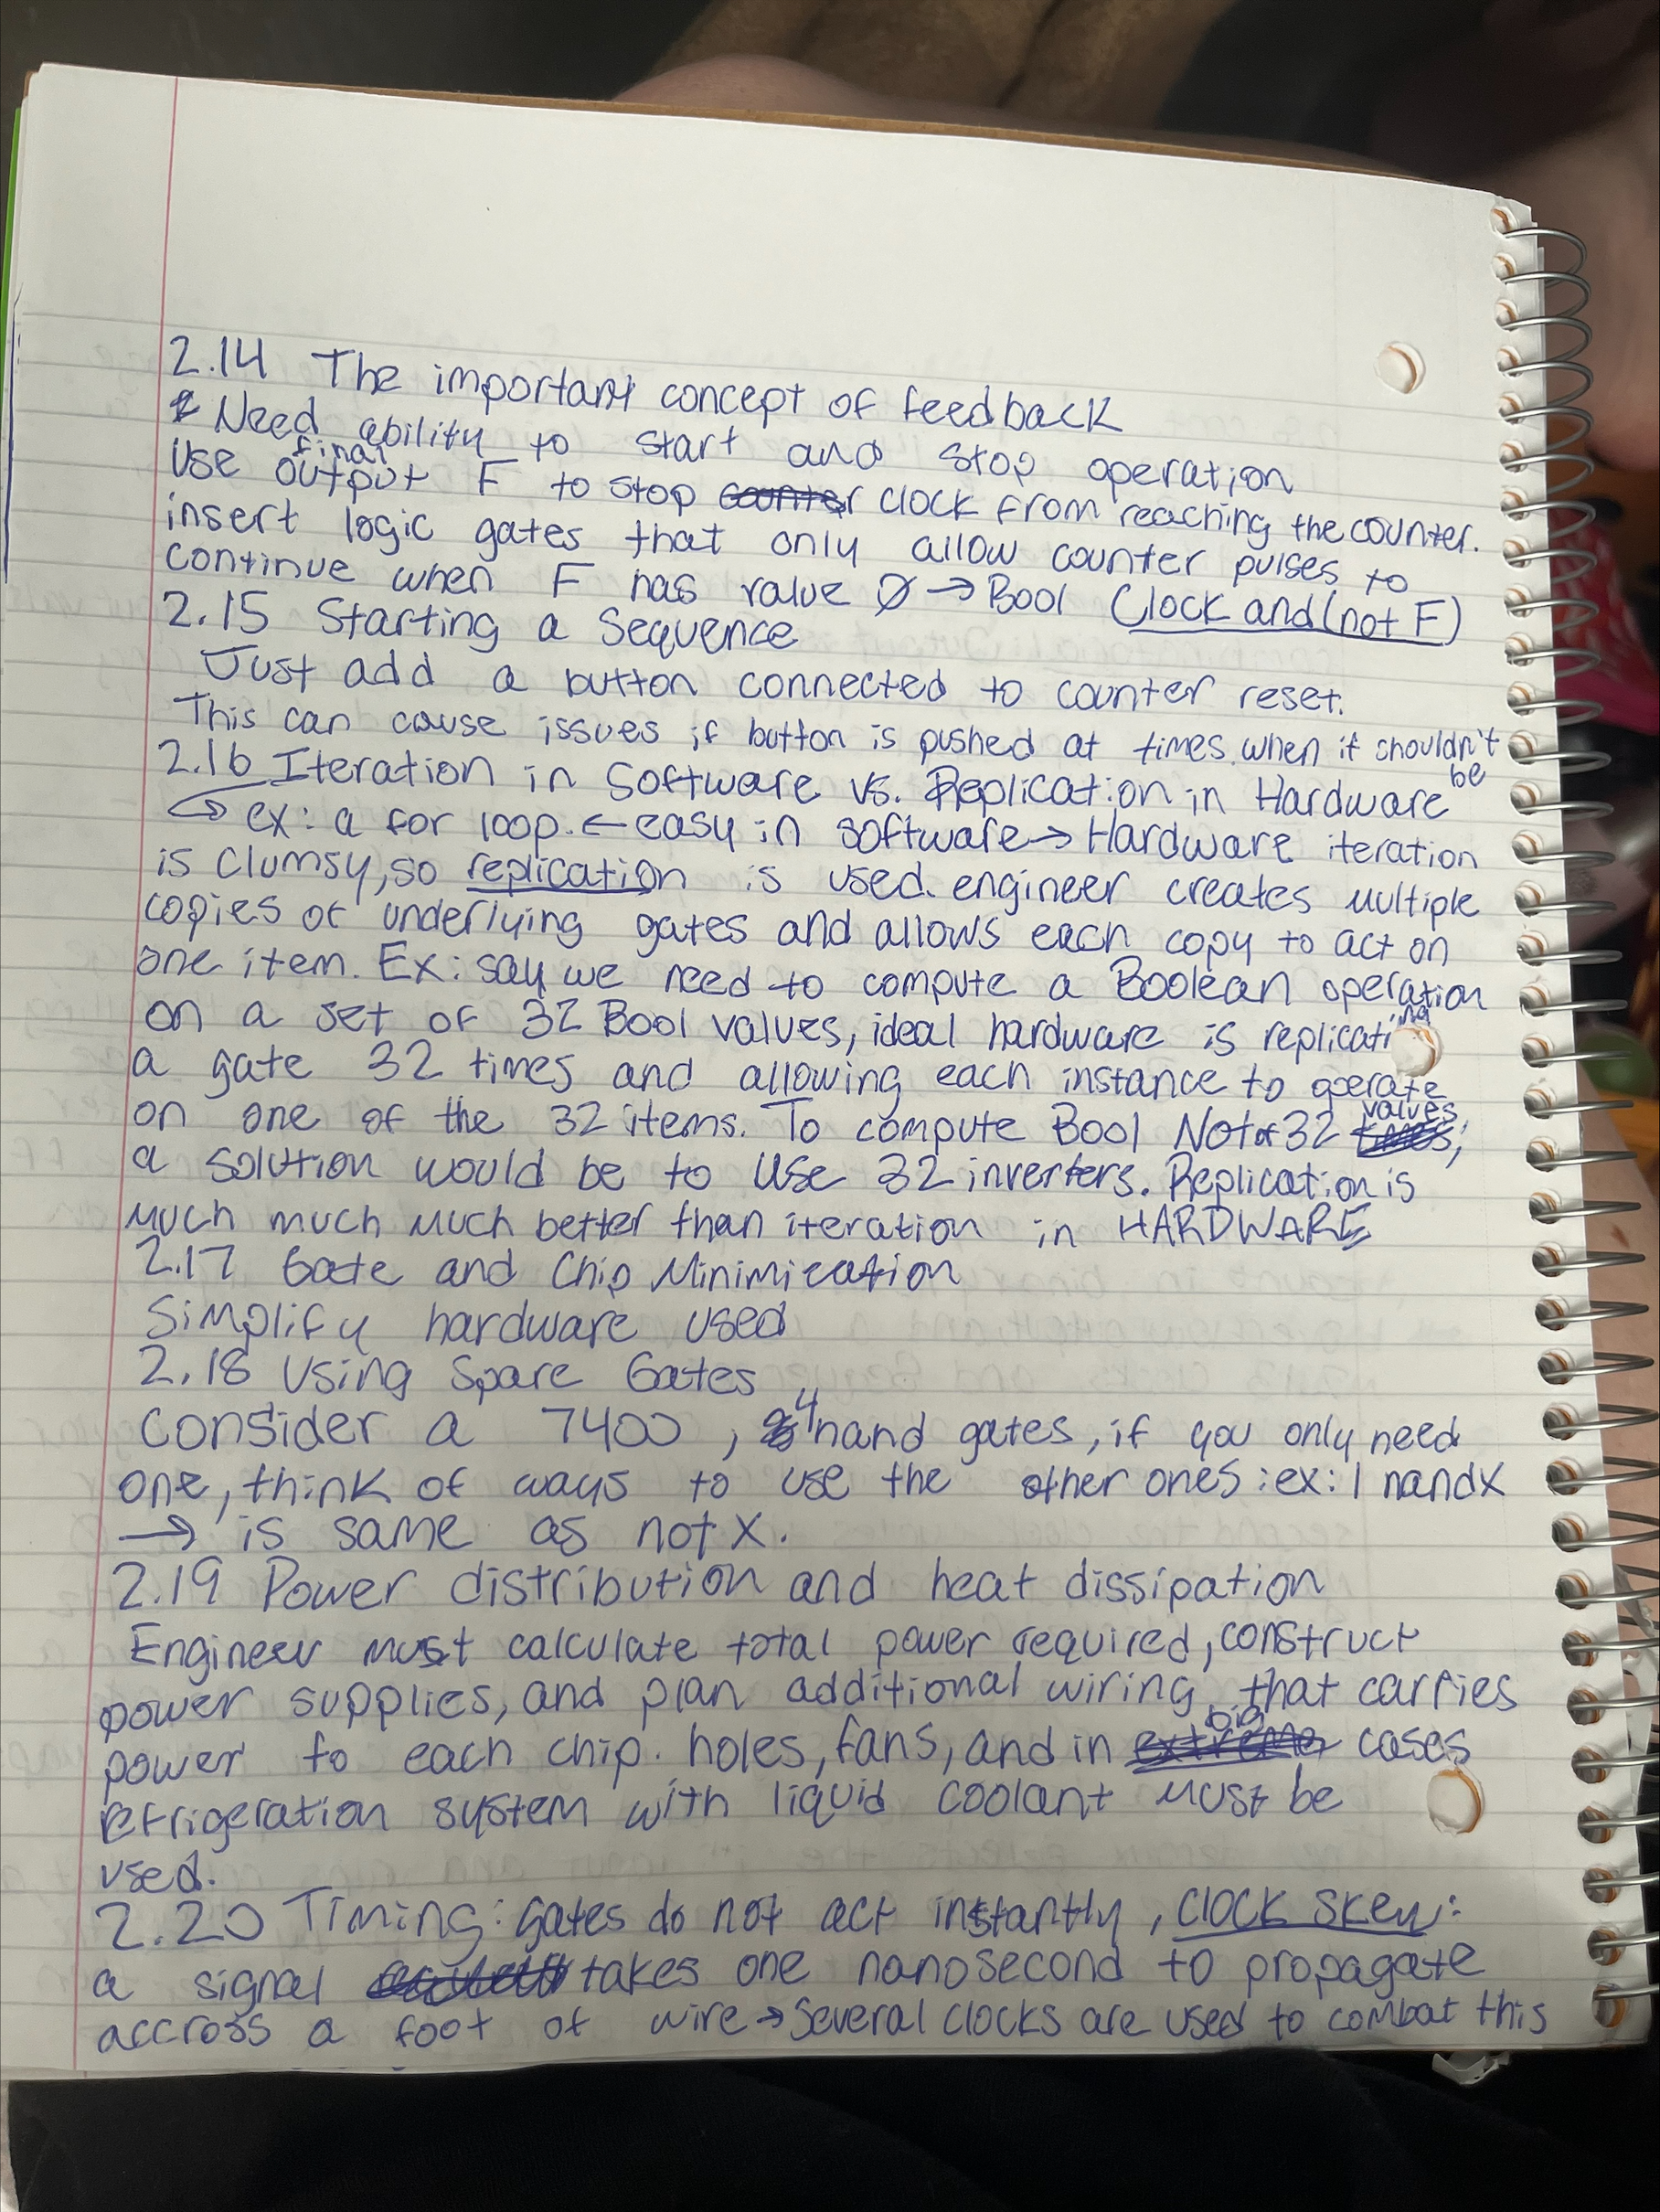 2.14 The important concept of feedback
Need ability to start and stop operation
Use final output F to stop counter clock from reaching the counter.
insert logic gates that only allow counter pulses to
continue when F has value Ø → Bool Clock and (not F)
2.15 Starting a Sequence
Just add a button connected to counter reset.
This can cause issues if button is pushed at times when it shouldn't be
2.16 Iteration in Software vs. Replication in Hardware
ex: a for loop. ← easy in software → Hardware iteration
is clumsy, so replication is used. engineer creates multiple
copies of underlying gates and allows each copy to act on
one item. Ex: say we need to compute a Boolean operation
on a set of 32 Bool values, ideal hardware is replicating
a gate 32 times and allowing each instance to operate
on one of the 32 items. To compute Bool Not of 32 times values;
a solution would be to use 32 inverters. Replication is
much much much better than iteration in HARDWARE
2.17 Gate and Chip Minimization
Simplify hardware used
2.18 Using Spare Gates
Consider a 7400, 4 nand gates, if you only need
one, think of ways to use the other ones: ex: 1 nand x
→ is same as not x.
2.19 Power distribution and heat dissipation
Engineer must calculate total power required, construct
power supplies, and plan additional wiring that carries
power to each chip. holes, fans, and in extreme big cases
refrigeration system with liquid coolant must be
used.
2.20 Timing: gates do not act instantly, clock skew:
a signal takes one nanosecond to propagate
accross a foot of wire → Several clocks are used to combat this